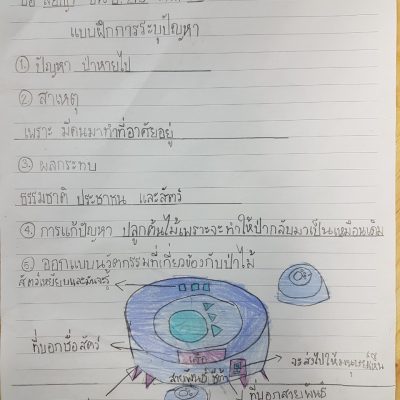 ชื่อ
แบบฝึกการระบุปัญหา
① ปัญหา ป่าหายไป
② สาเหตุ
เพราะ มีคนมาทำที่อาศัยอยู่
③ ผลกระทบ
ธรรมชาติ ประชาชน และสัตว์
④ การแก้ปัญหา ปลูกต้นไม้เพราะจะทำให้ป่ากลับมาเป็นเหมือนเดิม
⑤ ออกแบบนวัตกรรมที่เกี่ยวข้องกับป่าไม้
สัตว์เหยียบและมันจะรู้
ที่บอกชื่อสัตว์
เสือ
จะส่งไปให้มนุษย์เห็น
สายพันธุ์
ที่บอกสายพันธุ์